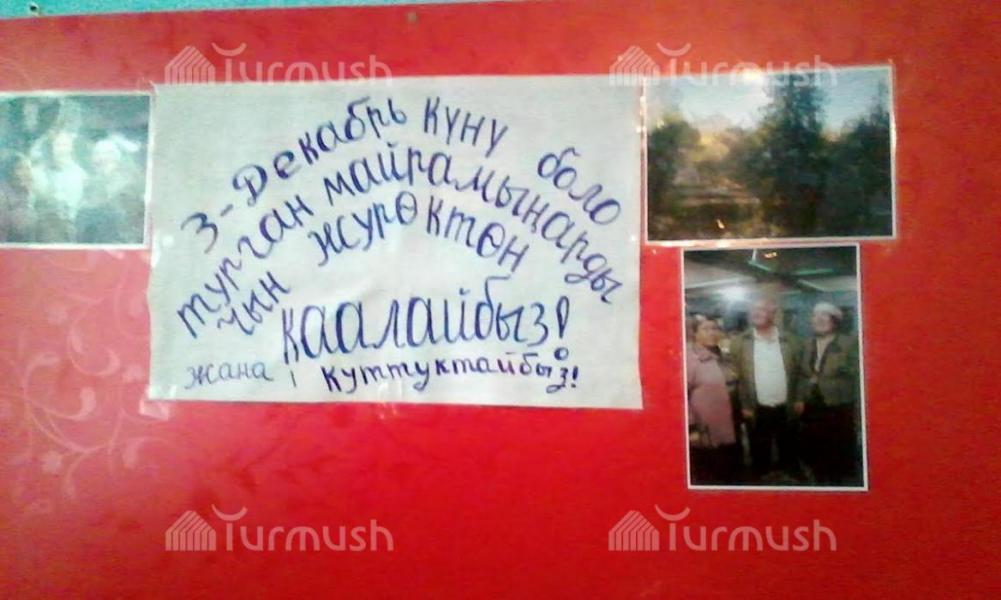 Turmush
Turmush
3-Декабрь күнү боло
турган майрамыңарды
чын жүрөктөн
каалайбыз!
жана куттуктайбыз!
Turmush
Turmush